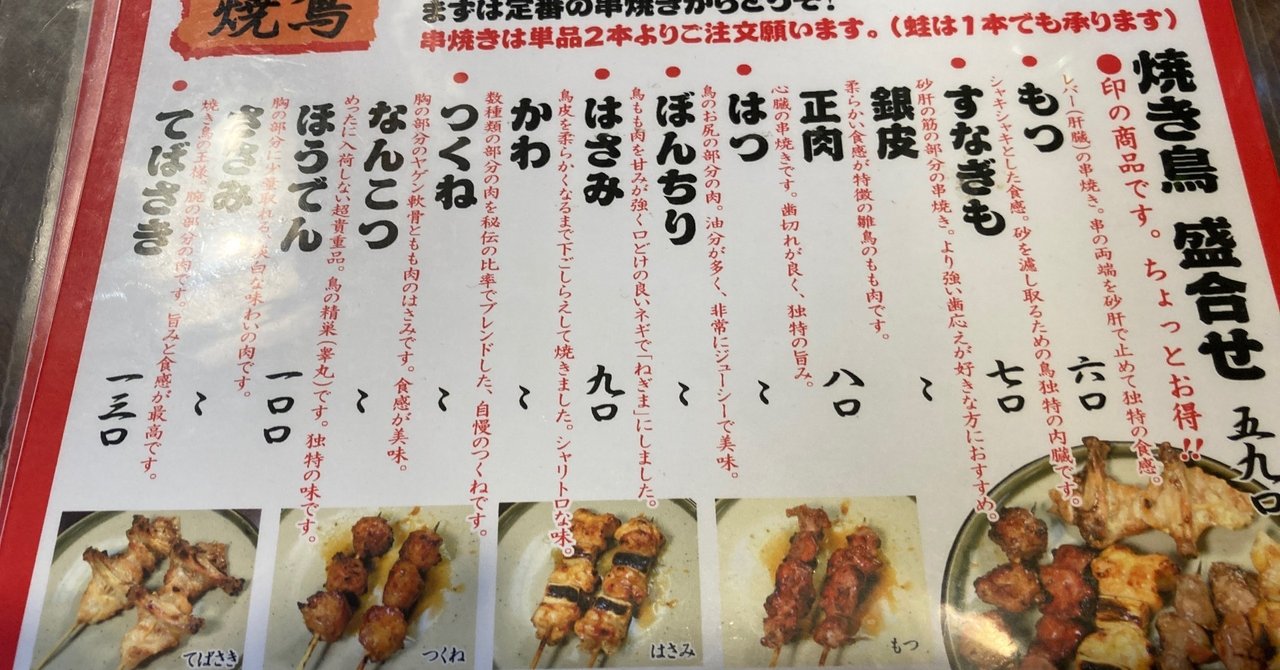 焼鳥
まずは定番の串焼きからどうぞ！
串焼きは単品2本よりご注文願います。（蛙は1本でも承ります）
焼き鳥 盛合せ 五九〇
●印の商品です。ちょっとお得！！
もつ 六〇
レバー（肝臓）の串焼き。串の両端を砂肝で止めて独特の食感。
すなぎも 七〇
シャキシャキとした食感。砂を濾し取るための鳥独特の内臓です。
銀皮 〜
砂肝の筋の部分の串焼き。より強い歯応えが好きな方におすすめ。
正肉 八〇
柔らかい食感が特徴の雛鳥のもも肉です。
はつ 〜
心臓の串焼きです。歯切れが良く、独特の旨み。
ぼんちり 〜
鳥のお尻の部分の肉。油分が多く、非常にジューシーで美味。
はさみ 九〇
鳥もも肉を甘みが強く口どけの良いネギで「ねぎま」にしました。
かわ 〜
鳥皮を柔らかくなるまで下ごしらえして焼きました。シャリトロな味。
つくね 〜
数種類の部分の肉を秘伝の比率でブレンドした、自慢のつくねです。
なんこつ 〜
胸の部分のヤゲン軟骨ともも肉のはさみです。食感が美味。
ほうでん 一〇〇
めったに入荷しない超貴重品。鳥の精巣（睾丸）です。独特の味です。
ささみ 〜
胸の部分に少量取れる、淡白な味わいの肉です。
てばさき 一三〇
焼き鳥の王様。腕の部分の肉です。旨みと食感が最高です。
てばさき
つくね
はさみ
もつ